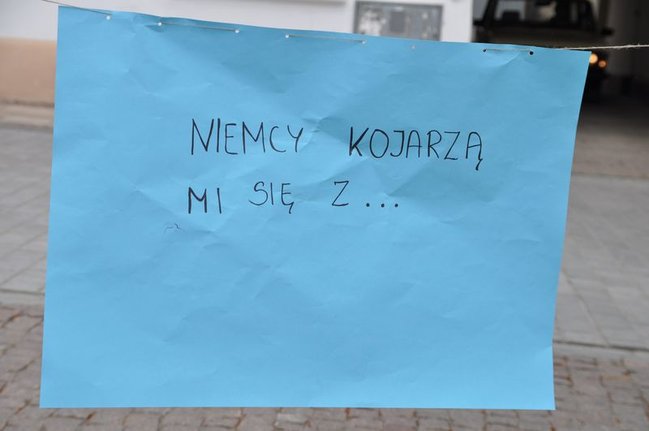 NIEMCY KOJARZĄ
MI SIĘ Z...